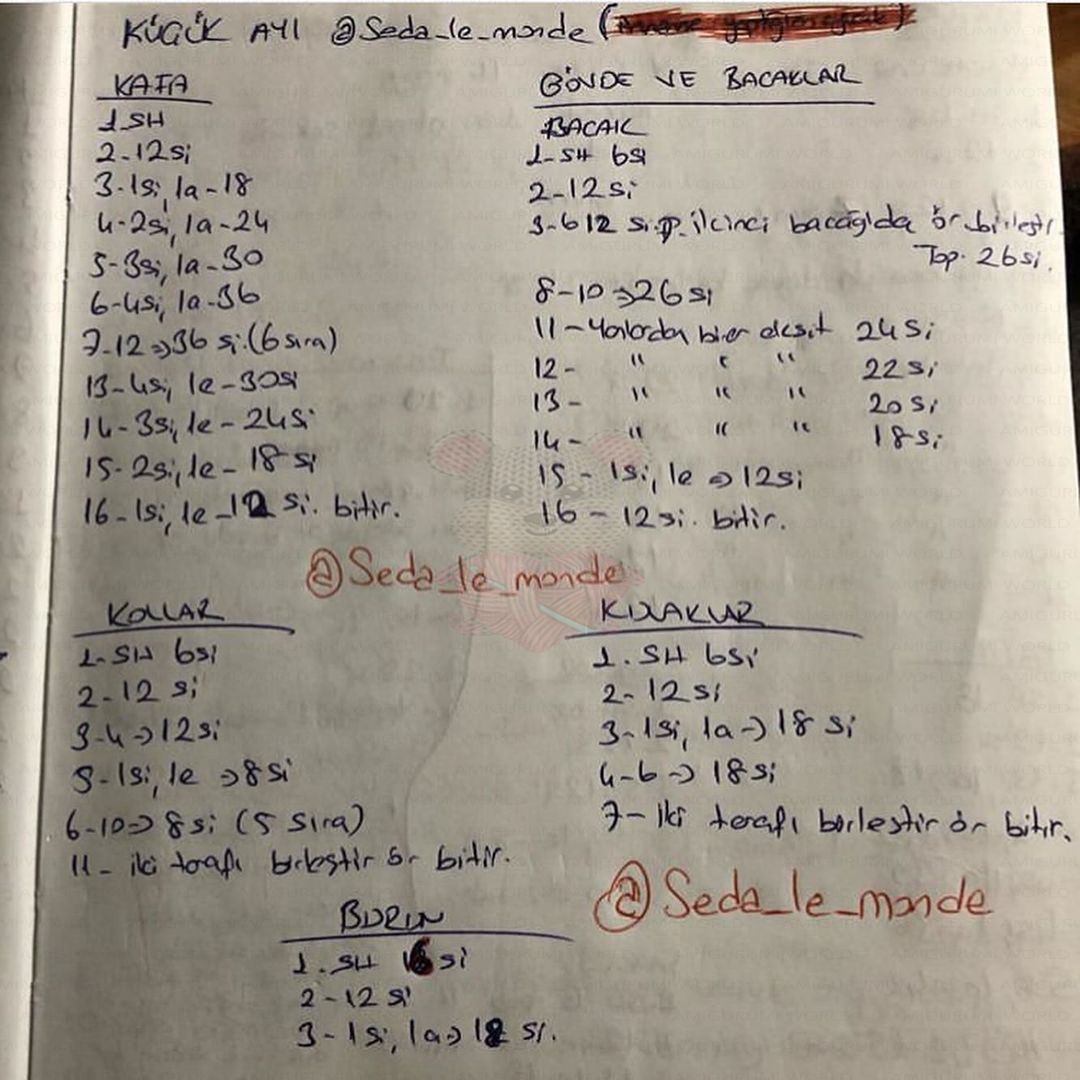 KÜÇÜK AYI @Seda_le_monde (
KAFA
1 SH
2-12si
3-1si, 1a-18
4-2si, 1a-24
5-3si, 1a-30
6-4si, 1a-36
7-12⇒36 si.(6 sıra)
13-4si, 1e-30si
14-3si, 1e-24si
15-2si, 1e-18 si
16-1si, 1e-12 si. bitir.
GÖVDE VE BACAKLAR
BACAK
1-SH 6si
2-12si
3-6 12 si. ikinci bacağıda ör birleştir.
Top. 26si.
8-10⇒26si
11-Yanlardan birer eksilt 24si
12- " " " 22si
13- " " " 20si
14- " " " 18si
15-1si, 1e⇒12si
16-12si. bitir.
@Seda_le_monde
KOLLAR
1-SH 6si
2-12 si
3-4→12si
5-1si, 1e ⇒8si
6-10⇒8si (5 sıra)
11-iki tarafı birleştir ör bitir.
KULAKLAR
1. SH 6si
2-12si
3-1si, 1a→18 si
4-6→18si
7-iki tarafı birleştir ör bitir.
@Seda_le_monde
BURUN
1. SH 6si
2-12 si
3-1si, 1a→18 si.
AMIGURUMI WORLD